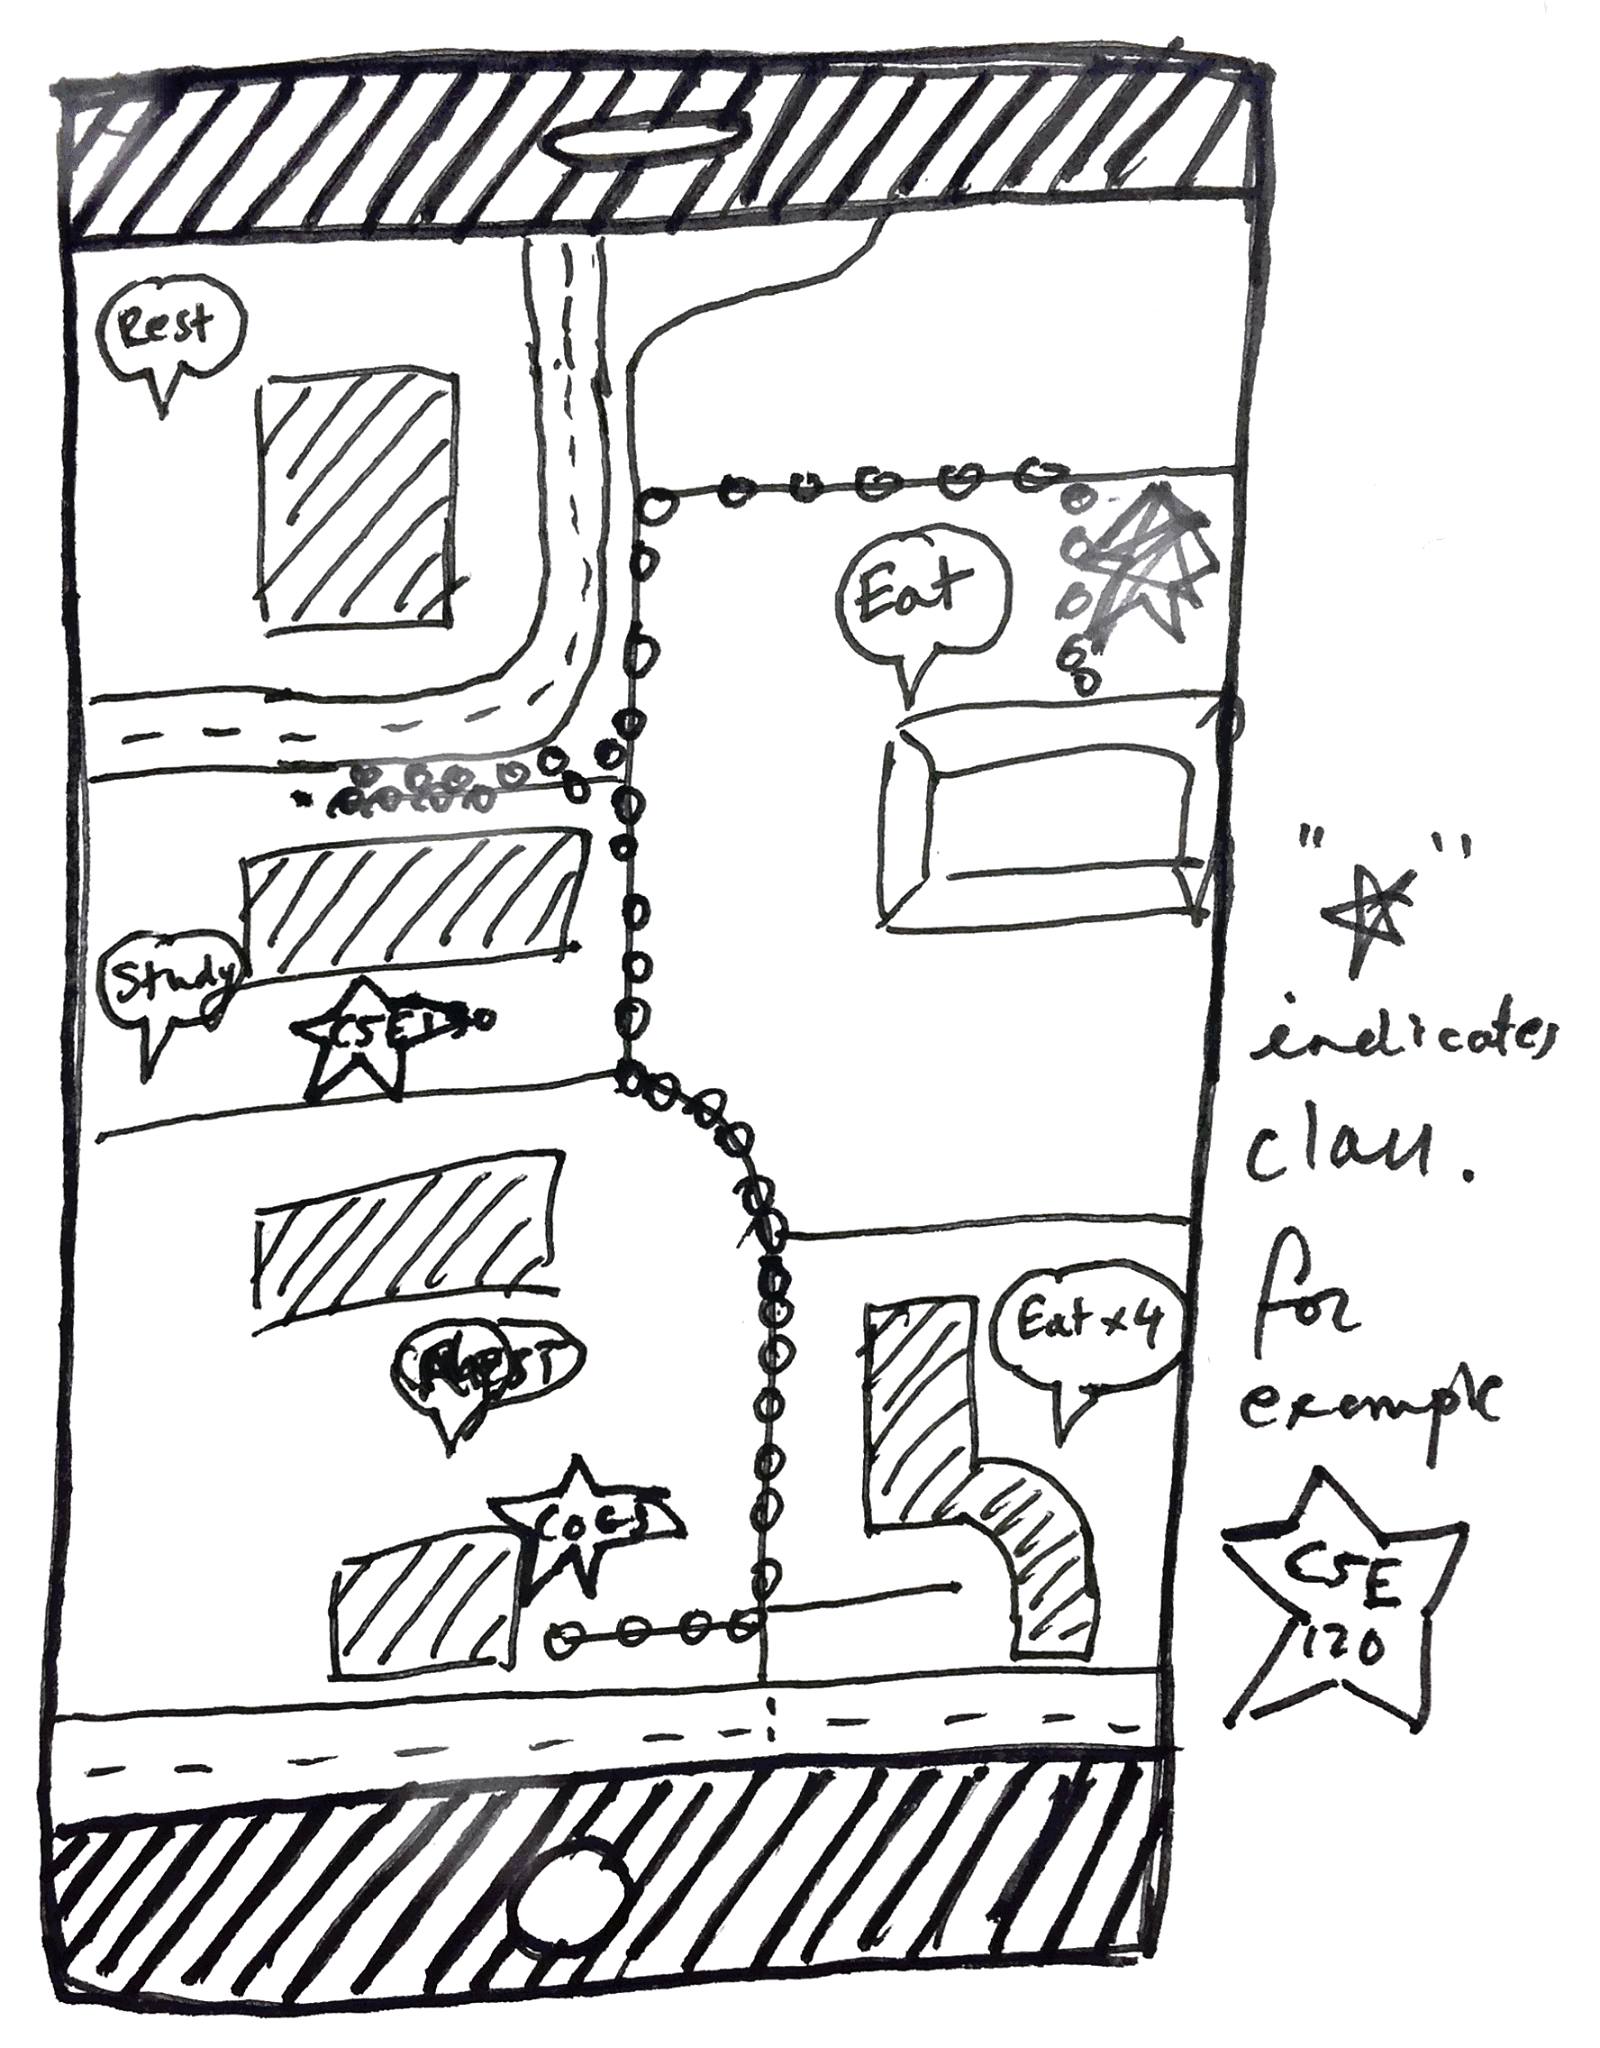 Rest
Eat
Study
Eat x 4
COGS
"☆"
indicates
class.
for
example
CSE
120